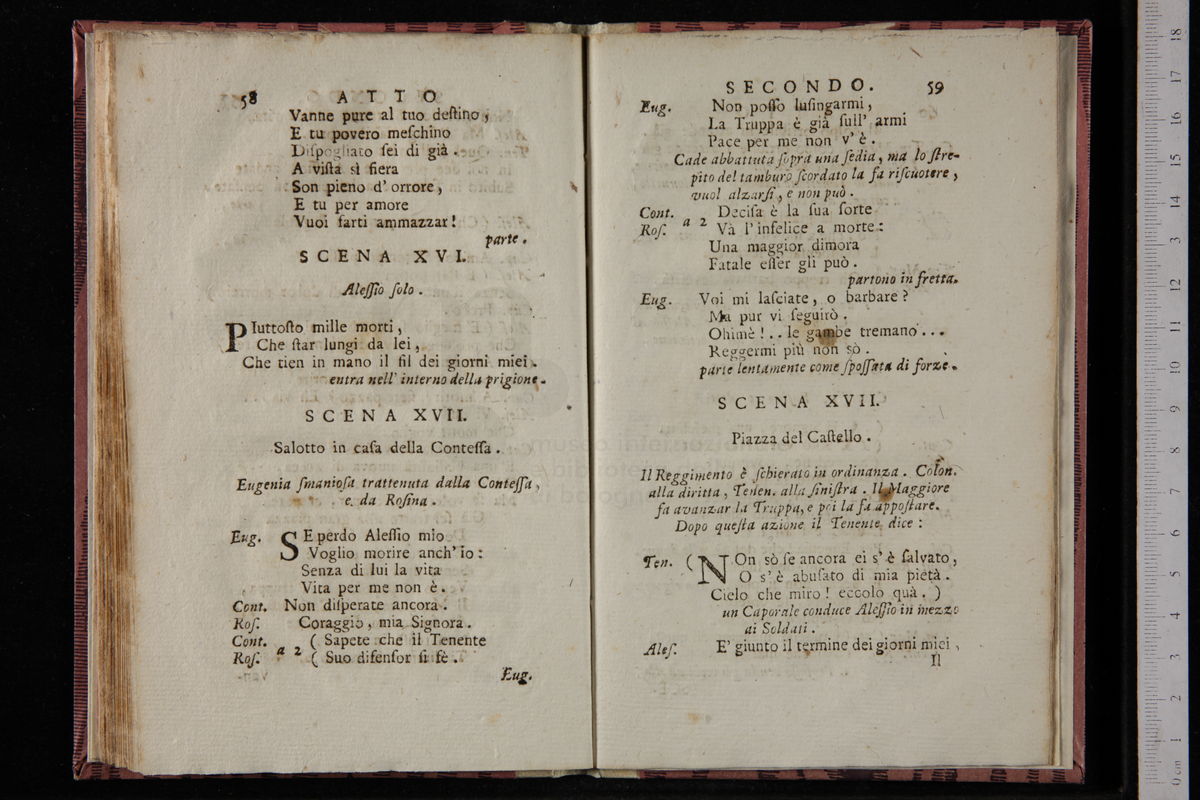 58 ATTO
Vanne pure al tuo deſtino,
E tu povero meſchino
Diſpogliato ſei di già.
A viſta sì fiera
Son pieno d' orrore,
E tu per amore
Vuoi farti ammazzar!
parte.
SCENA XVI.
Aleſſio ſolo.
PIuttoſto mille morti,
Che ſtar lungi da lei,
Che tien in mano il fil dei giorni miei.
entra nell' interno della prigione.
SCENA XVII.
Salotto in caſa della Conteſſa.
Eugenia ſmanioſa trattenuta dalla Conteſſa,
e da Roſina.
Eug. SE perdo Aleſſio mio
Voglio morire anch' io:
Senza di lui la vita
Vita per me non è.
Cont. Non diſperate ancora.
Roſ. Coraggio, mia Signora.
Cont. ( Sapete che il Tenente
Roſ. a 2 ( Suo difenſor ſi fè.
Eug.
SECONDO. 59
Eug. Non poſſo luſingarmi,
La Truppa è già ſull' armi
Pace per me non v' è.
Cade abbattuta ſopra una ſedia, ma lo ſtre-
pito del tamburo ſcordato la fa riſcuotere,
vuol alzarſi, e non può.
Cont. Deciſa è la ſua ſorte
Roſ. a 2 Và l' infelice a morte:
Una maggior dimora
Fatale eſſer gli può.
partono in fretta.
Eug. Voi mi laſciate, o barbare?
Ma pur vi ſeguirò.
Ohimè!.. le gambe tremano...
Reggermi più non sò.
parte lentamente come ſpoſſata di forze.
SCENA XVII.
Piazza del Caſtello.
Il Reggimento è ſchierato in ordinanza. Colon.
alla diritta, Tenen. alla ſiniſtra. Il Maggiore
fa avanzar la Truppa, e poi la fa appoſtare.
Dopo queſta azione il Tenente dice:
Ten. ( NOn sò ſe ancora ei s' è ſalvato,
O s' è abuſato di mia pietà.
Cielo che miro! eccolo quà. )
un Caporale conduce Aleſſio in mezzo
ai Soldati.
Aleſ. E' giunto il termine dei giorni miei,
Il